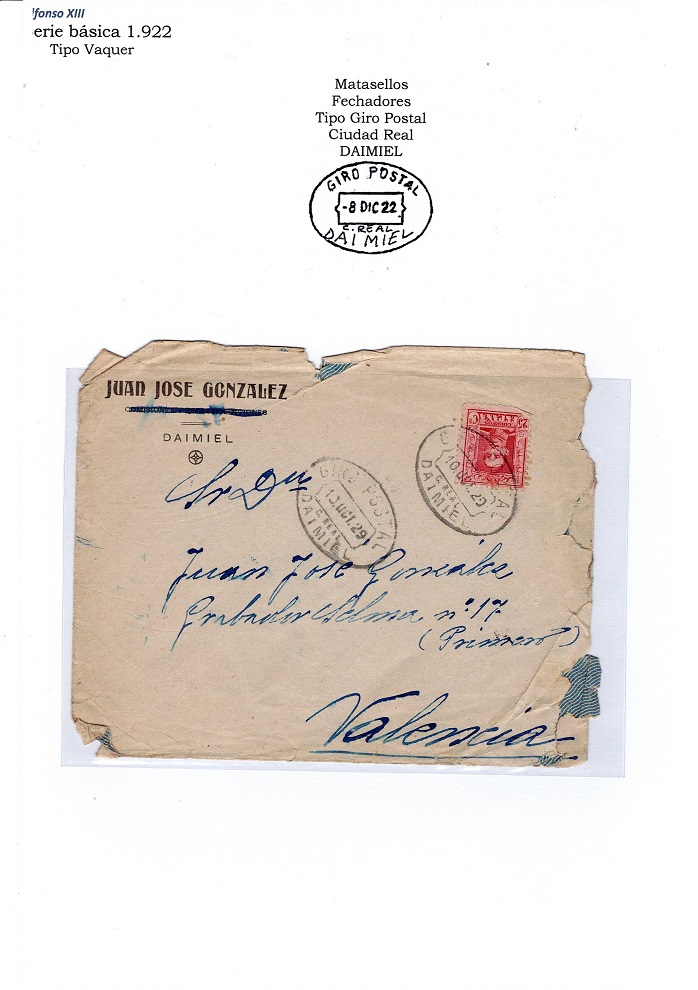 lfonso XIII
erie básica 1.922
Tipo Vaquer
Matasellos
Fechadores
Tipo Giro Postal
Ciudad Real
DAIMIEL
GIRO POSTAL
-8 DIC 22
C. REAL
DAIMIEL
JUAN JOSE GONZALEZ
DAIMIEL
25 Cs
ESPAÑA
CORREOS
GIRO POSTAL
13 OCT. 29
C. REAL
DAIMIEL
C. REAL
DAIMIEL
Sr Dn
Juan José González
Grabador Selma nº 17
(Primero)
Valencia